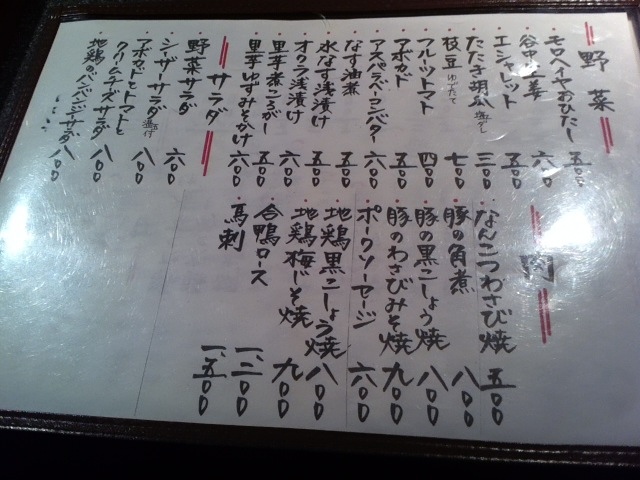 野菜
モロヘイヤおひたし 五〇〇
谷中生姜 六〇〇
エシャレット 五〇〇
たたき胡瓜 三〇〇
枝豆 ゆでたて 七〇〇
フルーツトマト 四〇〇
アボカド 五〇〇
アスパラベーコンバター 六〇〇
なす油煮 五〇〇
水なす浅漬け 五〇〇
オクラ浅漬け 六〇〇
里芋煮ころがし 五〇〇
里芋ゆずみそかけ 六〇〇
サラダ
野菜サラダ 六〇〇
シーザーサラダ 八〇〇
アボカドとトマトと
クリームチーズサラダ 八〇〇
地鶏のバンバンジーサラダ 八〇〇
肉
なんこつわさび焼 五〇〇
豚の角煮 八〇〇
豚の黒こしょう焼 八〇〇
豚のわさびみそ焼 九〇〇
ポークソーセージ 六〇〇
地鶏黒こしょう焼 八〇〇
地鶏梅じそ焼 九〇〇
合鴨ロース 一、二〇〇
馬刺 一、五〇〇